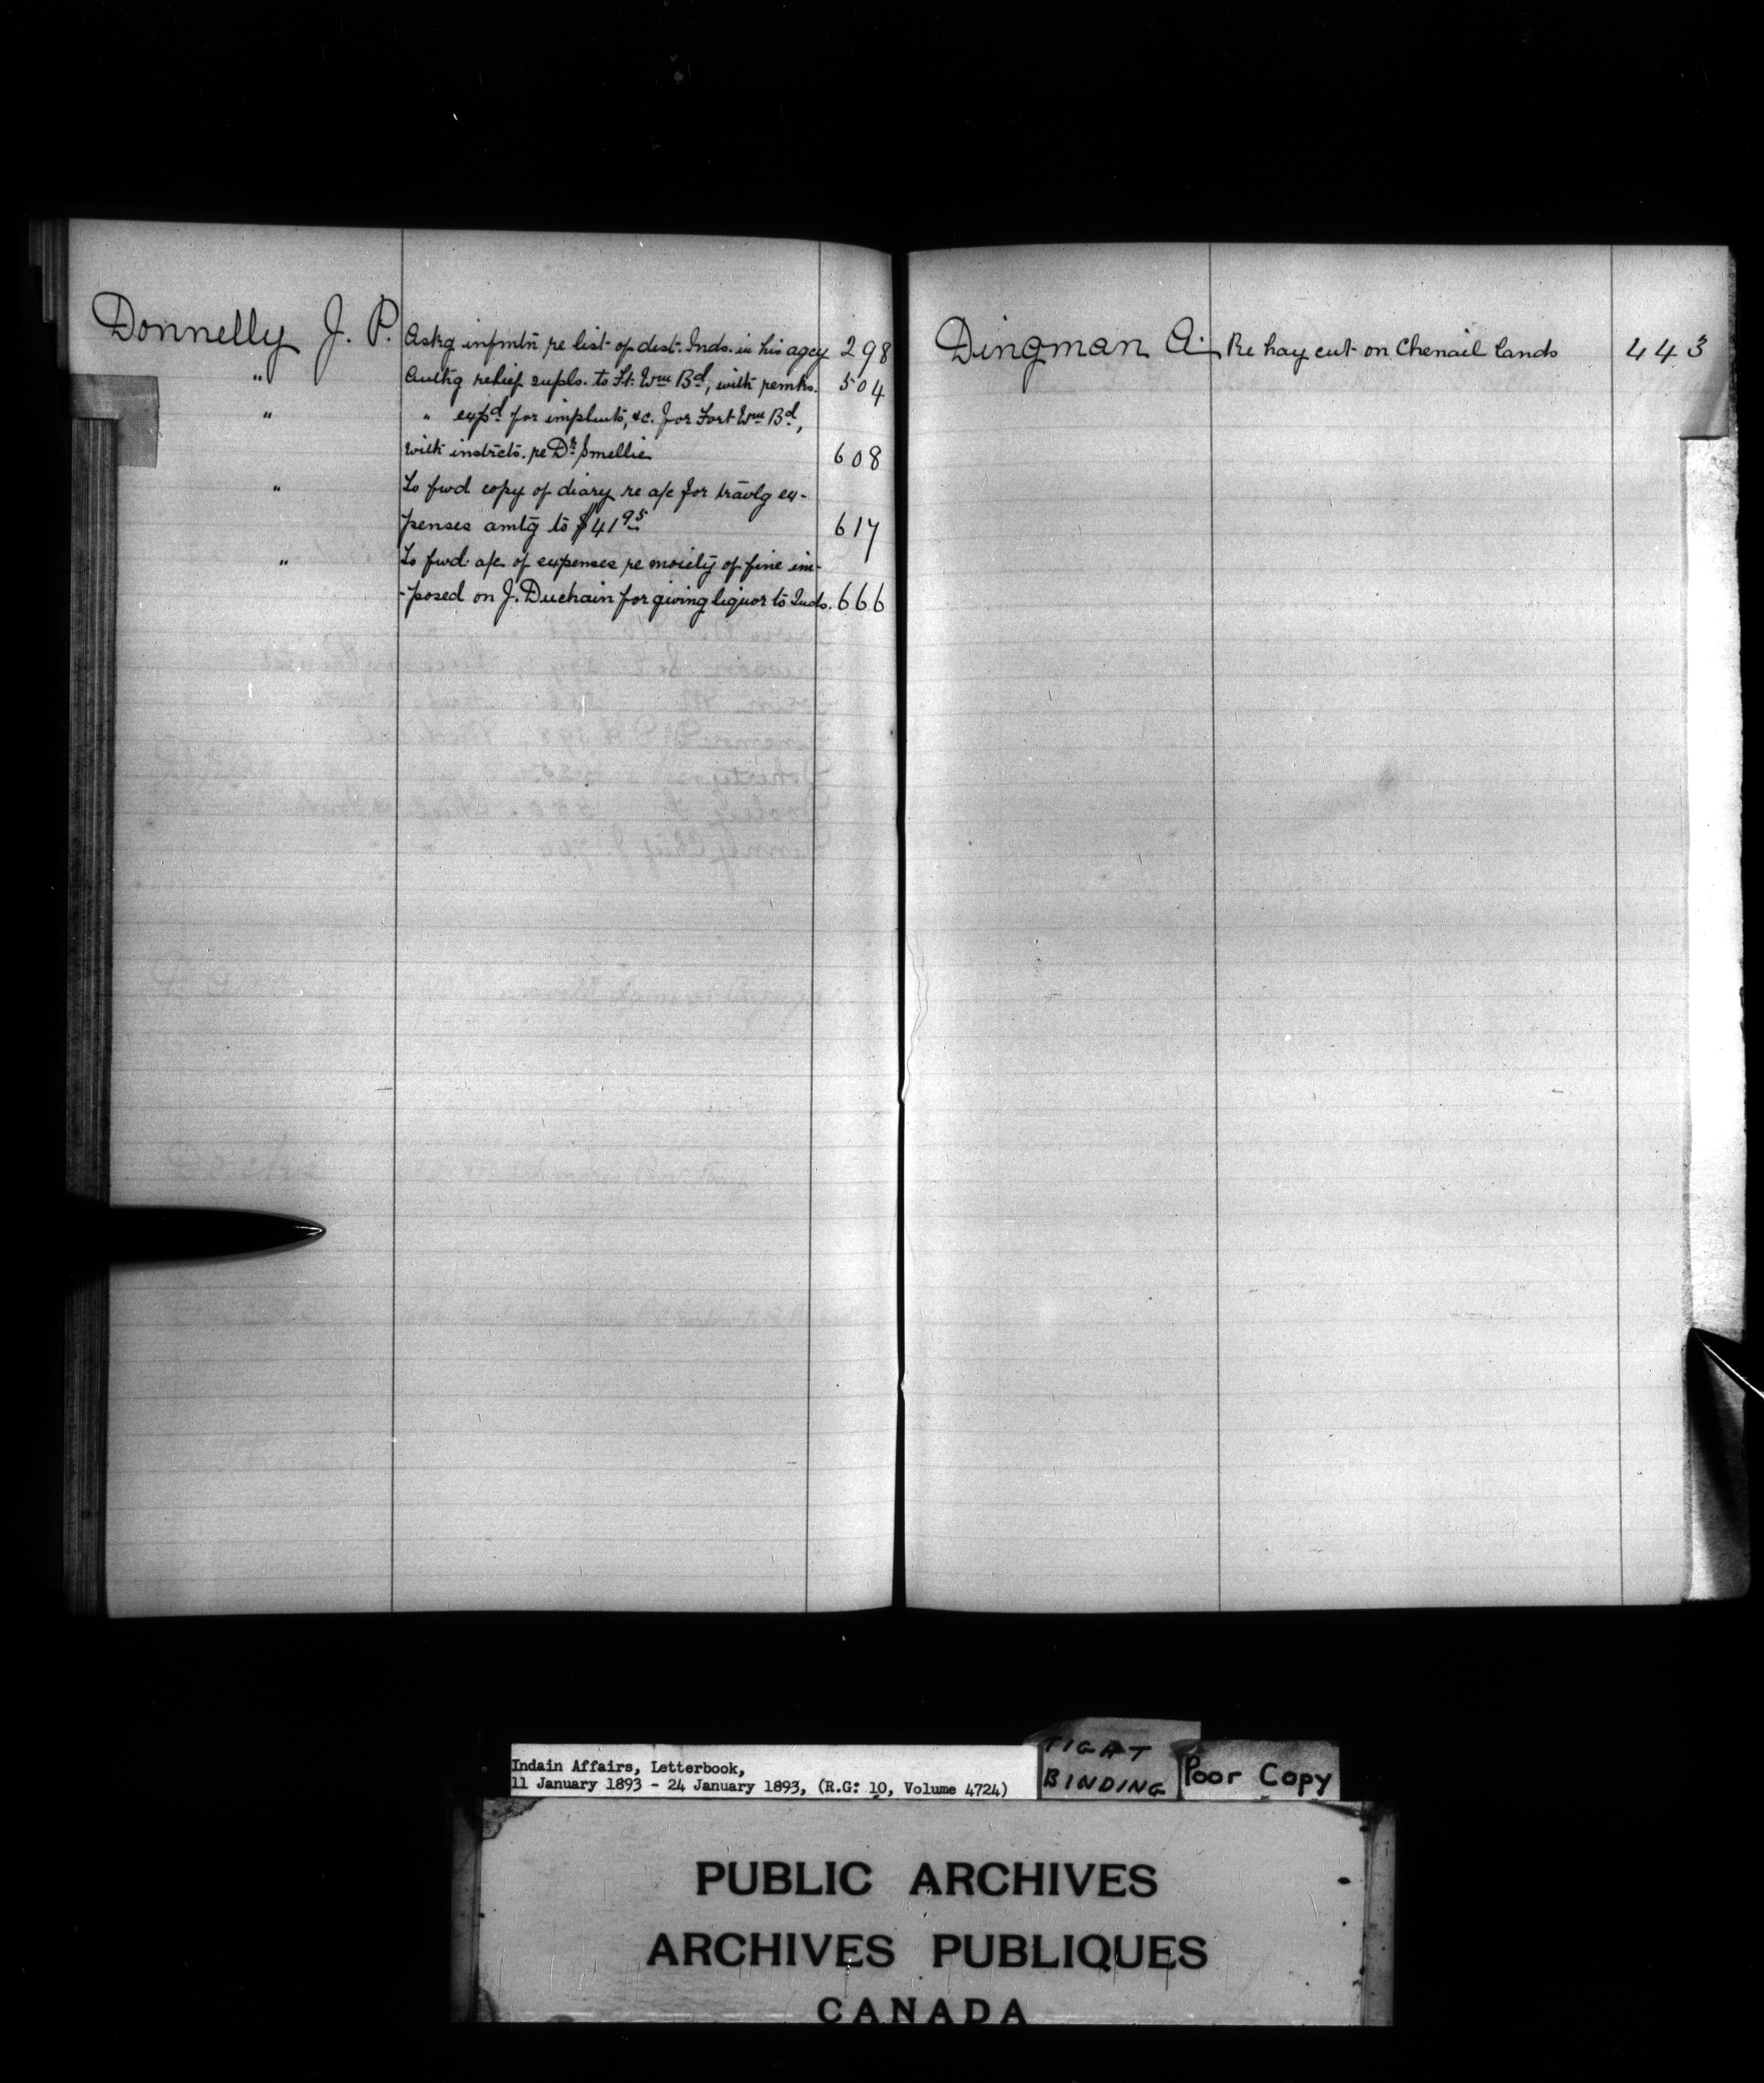 Donnelly J. P. Askg infmtn re list of dest. Inds. in his agcy 298
" Authg relief supls. to Ft. Wm Bd, with remks. 504
" " expd for implmts, &c. for Fort Wm Bd,
with instrcts. re Dr Smellie 608
" To fwd copy of diary re a/c for travlg ex-
penses amtg to $41 95 617
" To fwd a/c of expenses re moiety of fine im-
-posed on J. Duchain for giving liquor to Inds. 666
Dingman A. Re hay cut on Chenail lands 443
Indain Affairs, Letterbook,
11 January 1893 - 24 January 1893, (R.G: 10, Volume 4724)
TIGHT
BINDING
Poor Copy
PUBLIC ARCHIVES
ARCHIVES PUBLIQUES
CANADA